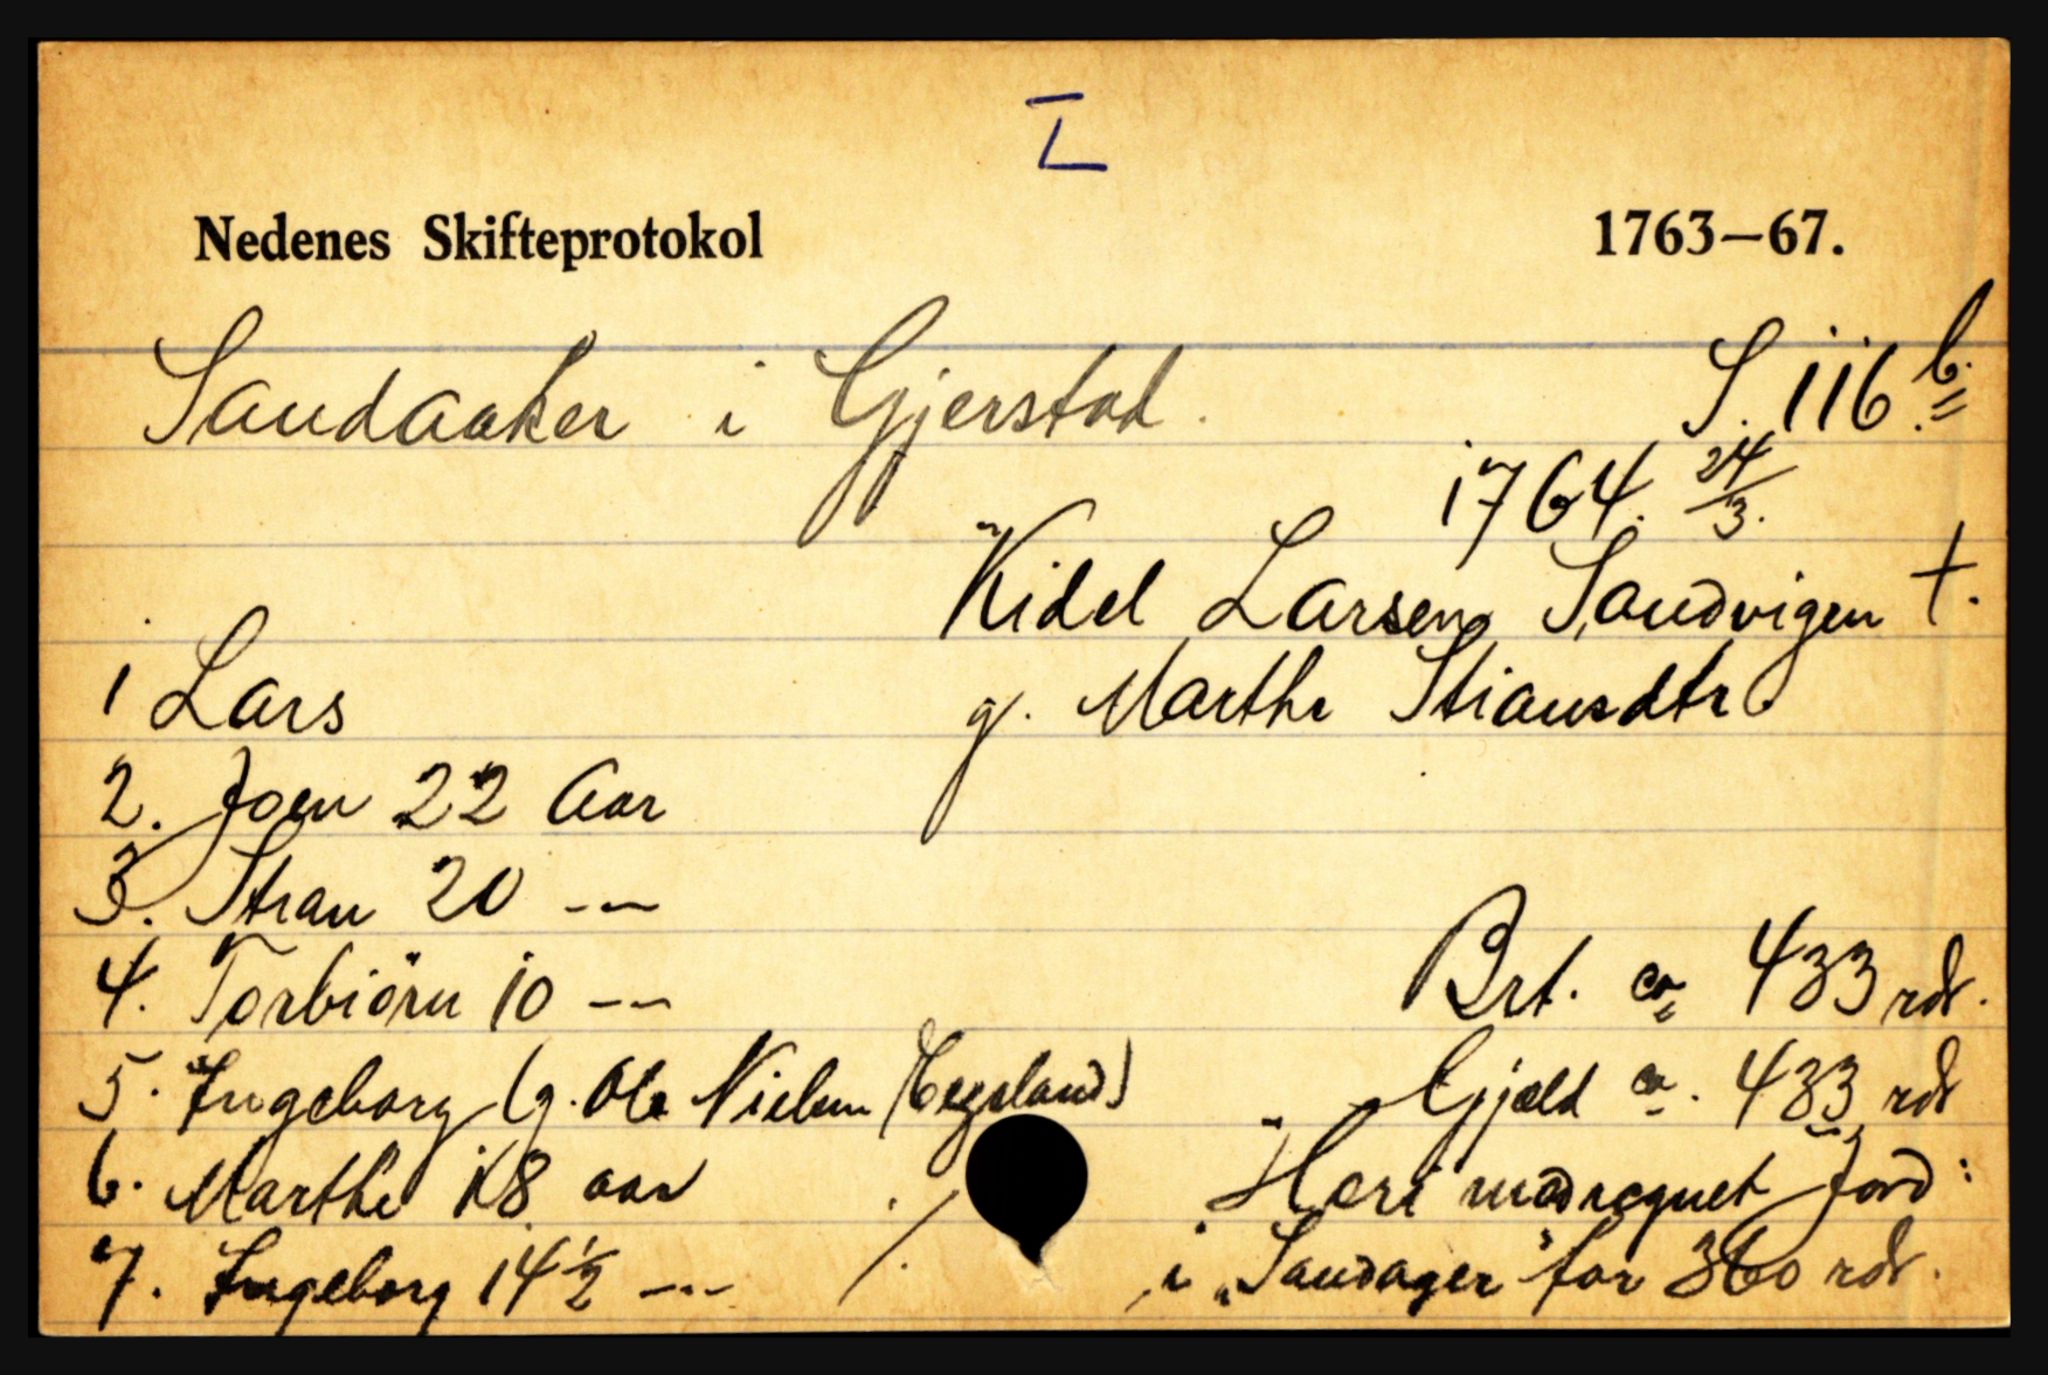 I
Nedenes Skifteprotokol 1763—67.
Sandaaker i Gjerstad. S. 116 b.
1764. 24/3.
Kidel Larsen Sandvigen †.
g. Marthe Stiansdtr
1 Lars
2. Joen 22 Aar
3. Stian 20 ---
4. Torbiörn 10 ---
5. Ingeborg (g. Ole Nielsen Eegeland)
6. Marthe 18 aar
7. Ingeborg 14 1/2 ---
Brt. ca 433 rdr.
Gjæld ca. 433 rdr
Heri medregnet Jord:
i "Sandager" for 360 rdr.